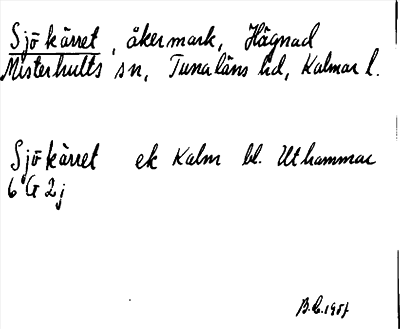 Sjökärret, åkermark, Hägnad
Misterhults sn, Tunaläns hd, Kalmar l.
Sjökärret ek Kalm bl. Uthammar
6 G 2 j